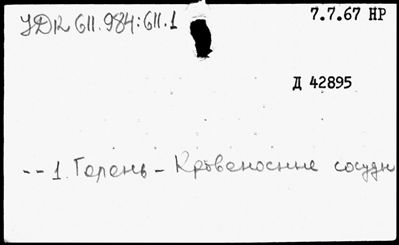 УДК 611.984:611.1
7.7.67 НР
Д 42895
-- 1. Голень - Кровеносные сосуды